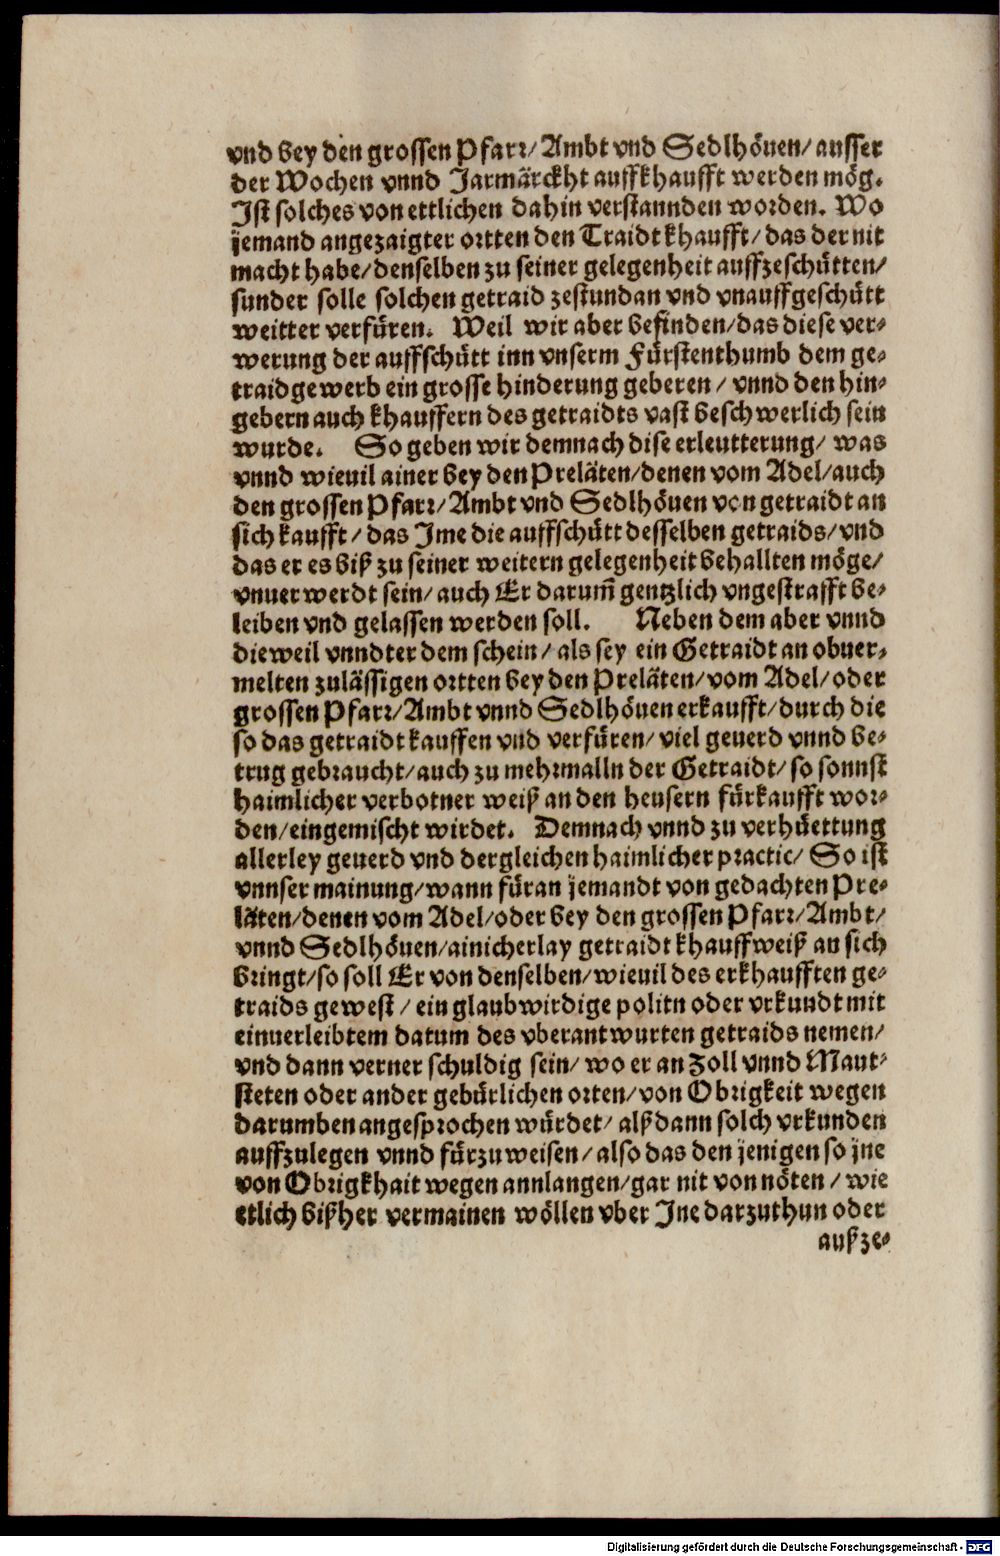 vnd bey den grossen Pfarr/Ambt vnd Sedlhöuen/ausser
der Wochen vnnd Jarmärckht auffkhaufft werden mög.
Ist solches von ettlichen dahin verstannden worden. Wo
jemand angezaigter ortten den Traidt khaufft/das der nit
macht habe/denselben zu seiner gelegenheit auffzeschütten/
sunder solle solchen getraid zestundan vnd vnauffgeschütt
weitter verfüren. Weil wir aber befinden/das diese ver-
werung der auffschütt inn vnserm Fürstenthumb dem ge-
traidgewerb ein grosse hinderung geberen/vnnd den hin-
gebern auch khauffern des getraidts vast beschwerlich sein
wurde. So geben wir demnach dise erleutterung/ was
vnnd wieuil ainer bey den Preläten/denen vom Adel/auch
den grossen Pfarr/Ambt vnd Sedlhöuen von getraidt an
sich kaufft/das Ime die auffschütt desselben getraids/vnd
das er es biß zu seiner weitern gelegenheit behallten möge/
vnuerwerdt sein/auch Er darum̃ gentzlich vngestrafft be-
leiben vnd gelassen werden soll. Neben dem aber vnnd
dieweil vnndter dem schein/als sey ein Getraidt an obuer-
melten zulässigen ortten bey den Preläten/vom Adel/oder
grossen Pfarr/Ambt vnnd Sedlhöuen erkaufft/durch die
so das getraidt kauffen vnd verfüren/viel geuerd vnnd be-
trug gebraucht/auch zu mehrmalln der Getraidt/so sonnst
haimlicher verbotner weiß an den heusern fürkaufft wor-
den/eingemischt wirdet. Demnach vnnd zu verhüettung
allerley geuerd vnd dergleichen haimlicher practic/ So ist
vnnser mainung/wann füran jemandt von gedachten Pre-
läten/denen vom Adel/oder bey den grossen Pfarr/Ambt/
vnnd Sedlhöuen/ainicherlay getraidt khauffweiß an sich
bringt/so soll Er von denselben/wieuil des erkhaufften ge-
traids gewest/ein glaubwirdige politn oder vrkundt mit
einuerleibtem datum des vberantwurten getraids nemen/
vnd dann verner schuldig sein/wo er an Zoll vnnd Maut-
steten oder ander gebürlichen orten/von Obrigkeit wegen
darumben angesprochen würdet/alßdann solch vrkunden
auffzulegen vnnd fürzuweisen/also das den jenigen so jne
von Obrigkhait wegen annlangen/gar nit von nöten/wie
etlich bißher vermainen wöllen vber Ine darzuthun oder
außze-
Digitalisierung gefördert durch die Deutsche Forschungsgemeinschaft - DFG